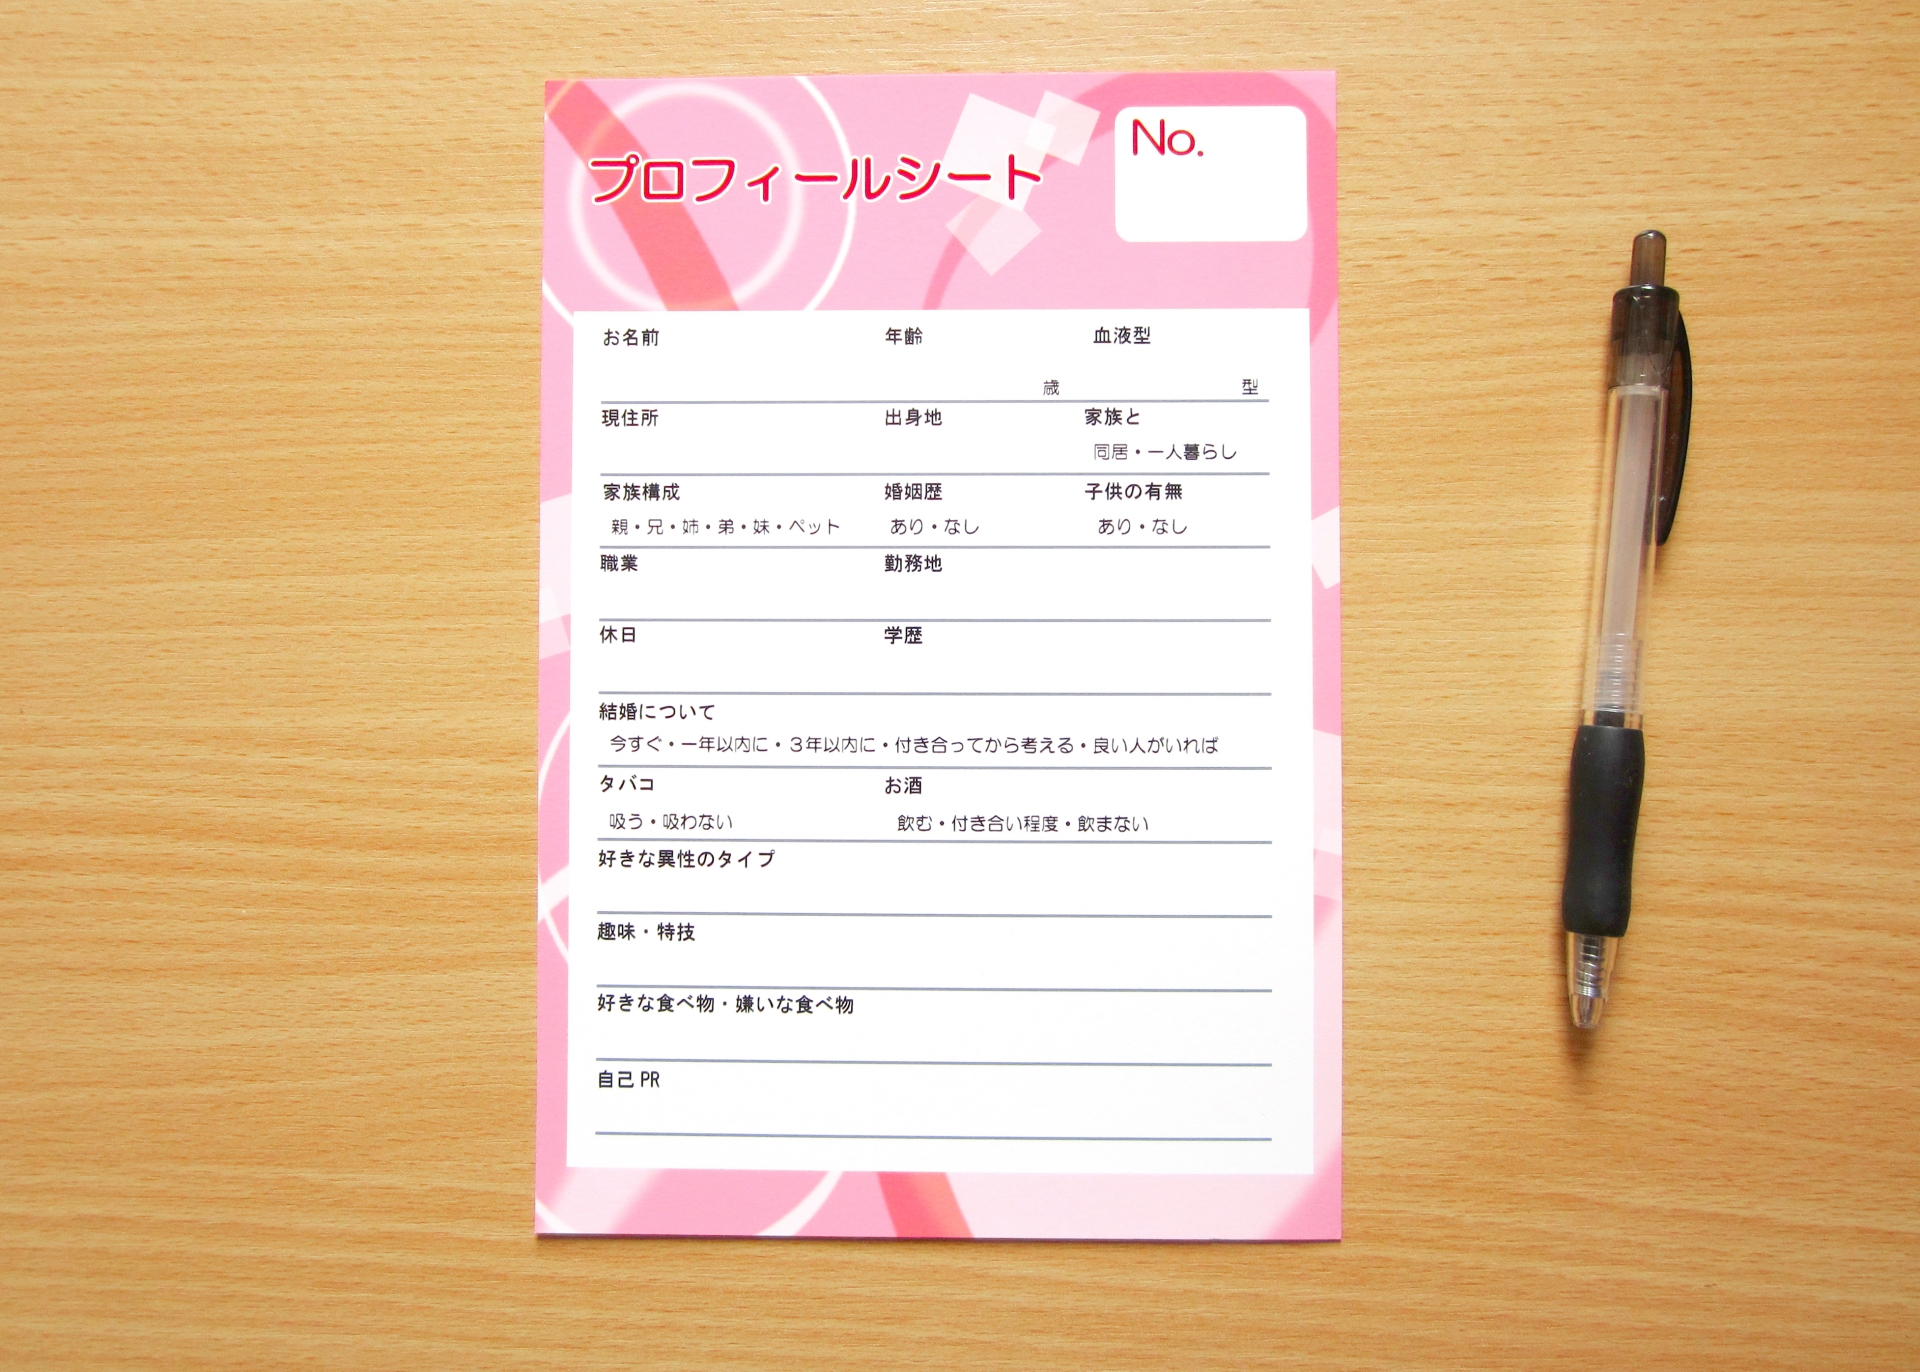 プロフィールシート
No.
お名前 年齢 血液型
歳 型
現住所 出身地 家族と
同居・一人暮らし
家族構成 婚姻歴 子供の有無
親・兄・姉・弟・妹・ペット あり・なし あり・なし
職業 勤務地
休日 学歴
結婚について
今すぐ・一年以内に・3年以内に・付き合ってから考える・良い人がいれば
タバコ お酒
吸う・吸わない 飲む・付き合い程度・飲まない
好きな異性のタイプ
趣味・特技
好きな食べ物・嫌いな食べ物
自己 PR